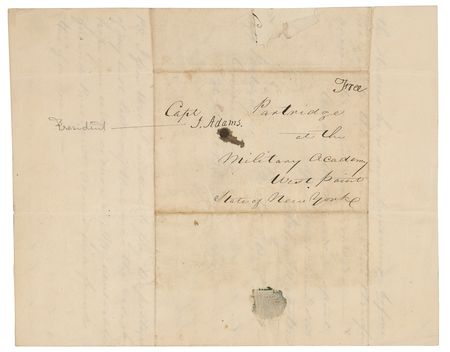 Free
President
Capt Partridge
J. Adams.
at the
Military Academy
West Point
State of New York